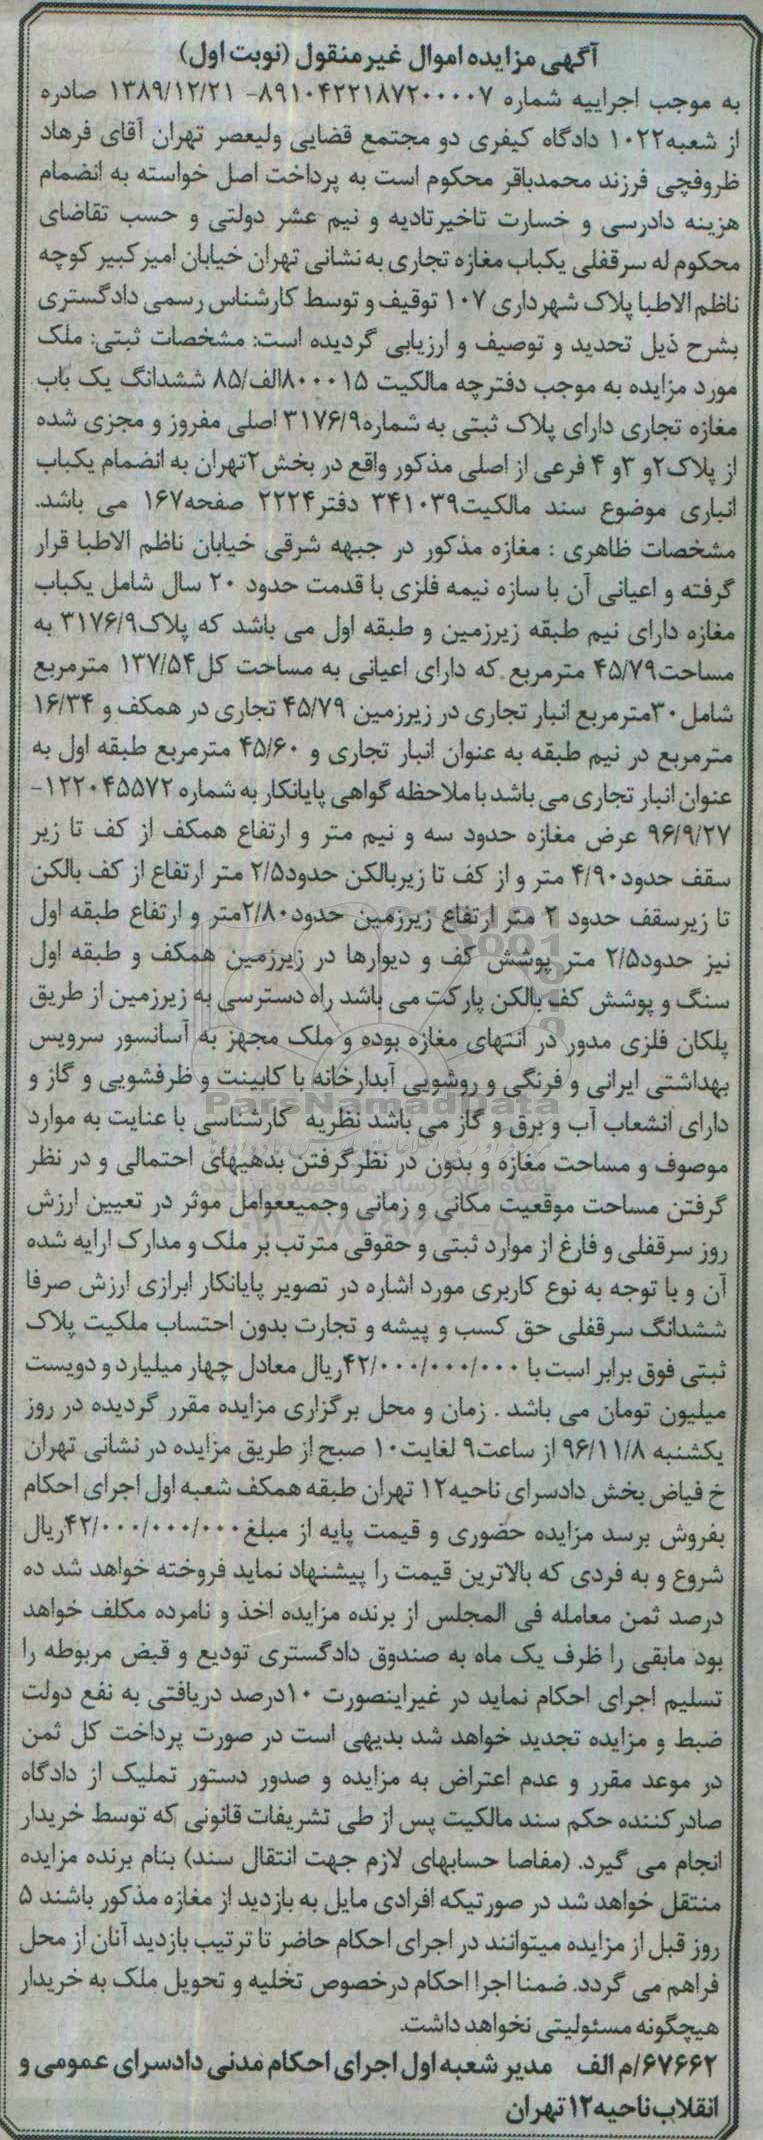 آگهی مزایده اموال غیرمنقول (نوبت اول)
به موجب اجراییه شماره ۸۹۱۰۴۲۲۱۸۷۲۰۰۰۰۷- ۱۳۸۹/۱۲/۲۱ صادره
از شعبه۱۰۲۲ دادگاه کیفری دو مجتمع قضایی ولیعصر تهران آقای فرهاد
ظروفچی فرزند محمدباقر محکوم است به پرداخت اصل خواسته به انضمام
هزینه دادرسی و خسارت تاخیرتادیه و نیم عشر دولتی و حسب تقاضای
محکوم له سرقفلی یکباب مغازه تجاری به نشانی تهران خیابان امیرکبیر کوچه
ناظم الاطبا پلاک شهرداری ۱۰۷ توقیف و توسط کارشناس رسمی دادگستری
بشرح ذیل تحدید و توصیف و ارزیابی گردیده است: مشخصات ثبتی: ملک
مورد مزایده به موجب دفترچه مالکیت ۸۰۰۰۱۵الف/۸۵ ششدانگ یک باب
مغازه تجاری دارای پلاک ثبتی به شماره۳۱۷۶/۹ اصلی مفروز و مجزی شده
از پلاک۲و ۳و ۴ فرعی از اصلی مذکور واقع در بخش۲تهران به انضمام یکباب
انباری موضوع سند مالکیت۳۴۱۰۳۹ دفتر۲۲۲۴ صفحه۱۶۷ می باشد.
مشخصات ظاهری : مغازه مذکور در جبهه شرقی خیابان ناظم الاطبا قرار
گرفته و اعیانی آن با سازه نیمه فلزی با قدمت حدود ۲۰ سال شامل یکباب
مغازه دارای نیم طبقه زیرزمین و طبقه اول می باشد که پلاک۳۱۷۶/۹ به
مساحت۴۵/۷۹ مترمربع که دارای اعیانی به مساحت کل۱۳۷/۵۴ مترمربع
شامل۳۰مترمربع انبار تجاری در زیرزمین ۴۵/۷۹ تجاری در همکف و ۱۶/۳۴
مترمربع در نیم طبقه به عنوان انبار تجاری و ۴۵/۶۰ مترمربع طبقه اول به
عنوان انبار تجاری می باشد با ملاحظه گواهی پایانکار به شماره ۱۲۲۰۴۵۵۷۲-
۹۶/۹/۲۷ عرض مغازه حدود سه و نیم متر و ارتفاع همکف از کف تا زیر
سقف حدود۴/۹۰ متر و از کف تا زیربالکن حدود۲/۵ متر ارتفاع از کف بالکن
تا زیرسقف حدود ۲ متر ارتفاع زیرزمین حدود۲/۸۰متر و ارتفاع طبقه اول
نیز حدود۲/۵ متر پوشش کف و دیوارها در زیرزمین همکف و طبقه اول
سنگ و پوشش کف بالکن پارکت می باشد راه دسترسی به زیرزمین از طریق
پلکان فلزی مدور در انتهای مغازه بوده و ملک مجهز به آسانسور سرویس
بهداشتی ایرانی و فرنگی و روشویی آبدارخانه با کابینت و ظرفشویی و گاز و
ParsNamadData
دارای انشعاب آب و برق و گاز می باشد نظریه کارشناسی با عنایت به موارد
موصوف و مساحت مغازه و بدون در نظرگرفتن بدهیهای احتمالی و در نظر
گرفتن مساحت موقعیت مکانی و زمانی وجمیععوامل موثر در تعیین ارزش
روز سرقفلی و فارغ از موارد ثبتی و حقوقی مترتب بر ملک و مدارک ارایه شده
آن و با توجه به نوع کاربری مورد اشاره در تصویر پایانکار ابرازی ارزش صرفا
ششدانگ سرقفلی حق کسب و پیشه و تجارت بدون احتساب ملکیت پلاک
ثبتی فوق برابر است با ۴۲/۰۰۰/۰۰۰/۰۰۰ریال معادل چهار میلیارد و دویست
میلیون تومان می باشد . زمان و محل برگزاری مزایده مقرر گردیده در روز
یکشنبه ۹۶/۱۱/۸ از ساعت۹ لغایت۱۰ صبح از طریق مزایده در نشانی تهران
خ فیاض بخش دادسرای ناحیه۱۲ تهران طبقه همکف شعبه اول اجرای احکام
بفروش برسد مزایده حضوری و قیمت پایه از مبلغ۴۲/۰۰۰/۰۰۰/۰۰۰ریال
شروع و به فردی که بالاترین قیمت را پیشنهاد نماید فروخته خواهد شد ده
درصد ثمن معامله فی المجلس از برنده مزایده اخذ و نامرده مکلف خواهد
بود مابقی را ظرف یک ماه به صندوق دادگستری تودیع و قبض مربوطه را
تسلیم اجرای احکام نماید در غیراینصورت ۱۰درصد دریافتی به نفع دولت
ضبط و مزایده تجدید خواهد شد بدیهی است در صورت پرداخت کل ثمن
در موعد مقرر و عدم اعتراض به مزایده و صدور دستور تملیک از دادگاه
صادرکننده حکم سند مالکیت پس از طی تشریفات قانونی که توسط خریدار
انجام می گیرد. (مفاصا حسابهای لازم جهت انتقال سند) بنام برنده مزایده
منتقل خواهد شد در صورتیکه افرادی مایل به بازدید از مغازه مذکور باشند ۵
روز قبل از مزایده میتوانند در اجرای احکام حاضر تا ترتیب بازدید آنان از محل
فراهم می گردد. ضمنا اجرا احکام درخصوص تخلیه و تحویل ملک به خریدار
هیچگونه مسئولیتی نخواهد داشت.
۶۷۶۶۲/م الف مدیر شعبه اول اجرای احکام مدنی دادسرای عمومی و
انقلاب ناحیه۱۲ تهران